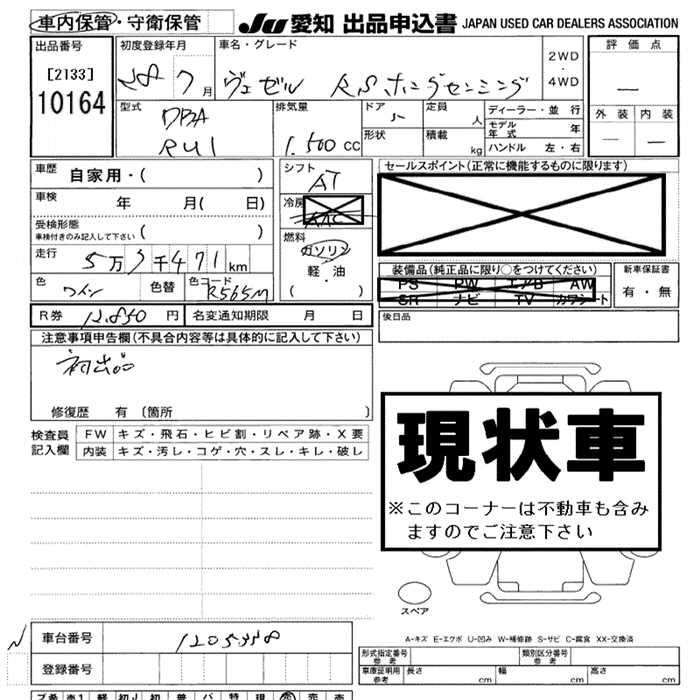 車内保管・守衛保管
JU 愛知 出品申込書 JAPAN USED CAR DEALERS ASSOCIATION
出品番号 初度登録年月 車名・グレード 評価点
[2133]
10164
28 7月 ヴェゼル RSホンダセンシング 2WD・4WD —
型式 排気量 ドア 定員 ディーラー・並行 外装 内装
DBA 5 人 モデル年式 年 — —
RU1 1.500cc 形状 積載 kg ハンドル 左・右
車歴 自家用・( ) シフト セールスポイント(正常に機能するものに限ります)
AT
車検 年 月( 日) 冷房
AAC
受検形態
車検付きのみ記入して下さい ( ) 燃料
ガソリン
走行 5万 千471km 軽・油 装備品(純正品に限り○をつけてください) 新車保証書
・( ) PS PW エアB AW 有・無
色 ワイン 色替 色コード R565M SR ナビ TV カワシート
R券 12.850円 名変通知期限 月 日 後日品
注意事項申告欄(不具合内容等は具体的に記入して下さい)
初出品
修復歴 有〔箇所 〕
検査員 FW キズ・飛石・ヒビ割・リペア跡・X要
記入欄 内装 キズ・汚し・コゲ・穴・スレ・キレ・破レ
現状車
※このコーナーは不動車も含み
ますのでご注意下さい
スペア
A-キズ E-エクボ U-凹み W-補修跡 S-サビ C-腐食 XX-交換済
車台番号
登録番号
形式指定番号 参考 類別区分番号 参考
車庫証明用 参考 長さ cm 幅 cm 高さ cm